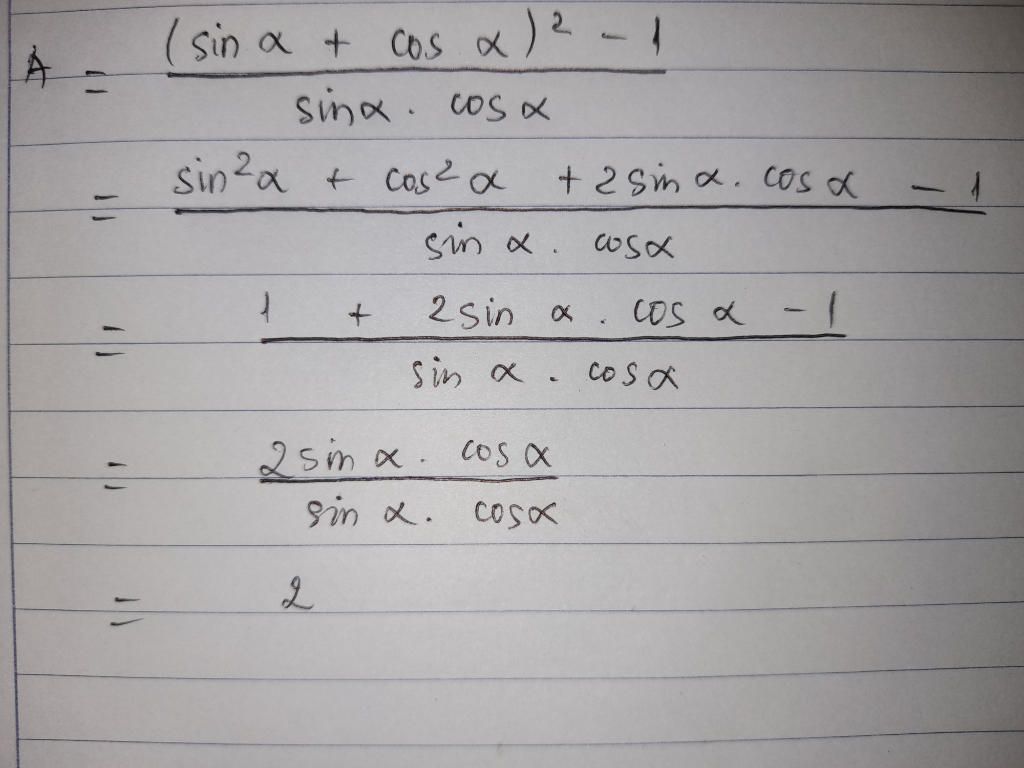 A = (sin α + cos α)² - 1
sinα . cos α
= sin²α + cos²α + 2 sin α. cos α - 1
sin α . cosα
= 1 + 2 sin α . cos α - 1
sin α . cosα
= 2 sin α . cos α
sin α. cosα
= 2